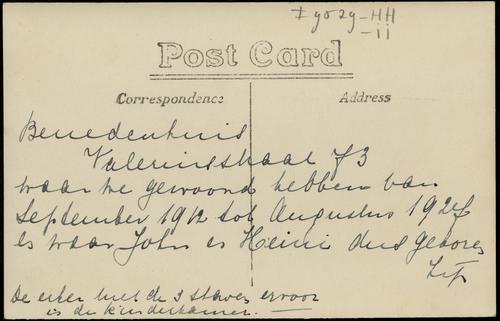 I 9029-HH
-ii
Post Card
Correspondence
Address
Benedenhuis
Valeriusstraat 73
waar we gewoond hebben van
September 1912 tot Augustus 192
en waar John en Heini dus geboren
zijn
De erker met de 3 ervoor
is de kinderkamer.